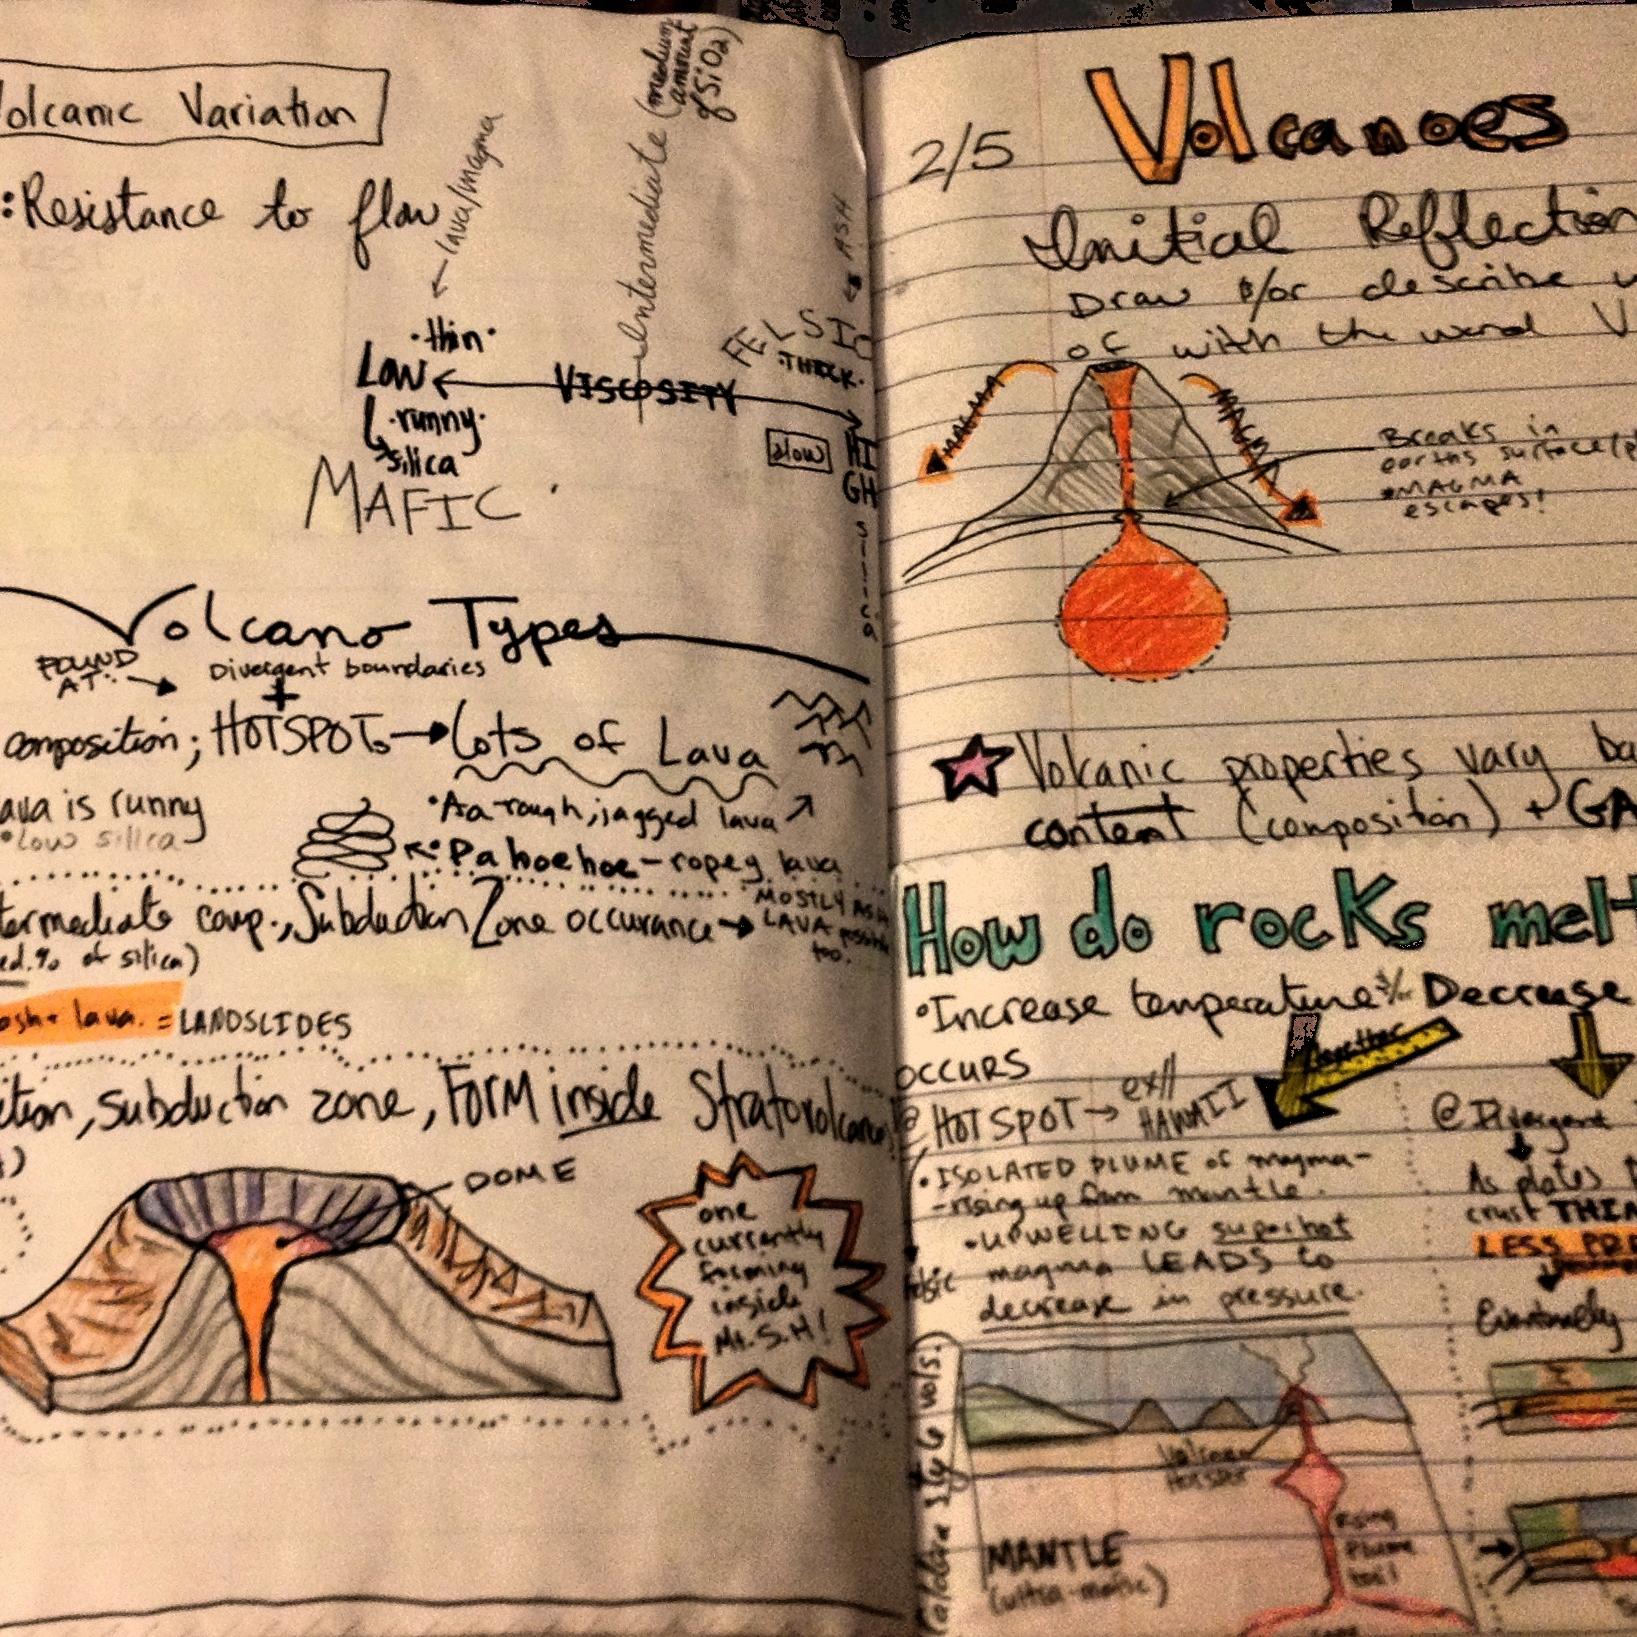 Volcanic Variation
:Resistance to flow
← lava/magma
Intermediate (medium
amount
of SiO2)
← ASH
FELSIC
·thin·
·THICK·
LOW ← VISCOSITY →
·runny·
silica
slow
HI
GH
silica
MAFIC
Volcano Types
FOUND
AT: →
Divergent boundaries
+
composition; HOTSPOTs → Lots of Lava
lava is runny
•Low silica
•Aa-rough, jagged lava
•Pahoehoe-ropey lava
Intermediate comp., Subduction Zone occurance →
MOSTLY ASH
LAVA possible
too.
med.% of silica)
ash+ lava. = LANDSLIDES
subduction zone, FORM inside Stratovolcanoes
DOME
one
currently
forming
inside
Mt. S.H!
2/5
Volcanoes
Initial Reflection
Draw &/or describe
of with the word V
MAGMA
MAGMA
Breaks in
earths surface
•MAGMA
escapes!
Volcanic properties vary ba
content (composition) + GA
How do rocks melt
•Increase temperature &/or Decrease
together
OCCURS
@ HOTSPOT → ex//
HAWAII
@ Divergent
•ISOLATED PLUME of magma-
-rising up from mantle.
•UPWELLING superhot
magma LEADS to
decrease in pressure.
As plates
crust THIN
LESS PRE
Eventually
caldera style vols.
Volcano
Hotspot
MANTLE
(ultra-mafic)
Rising
Plume
tail